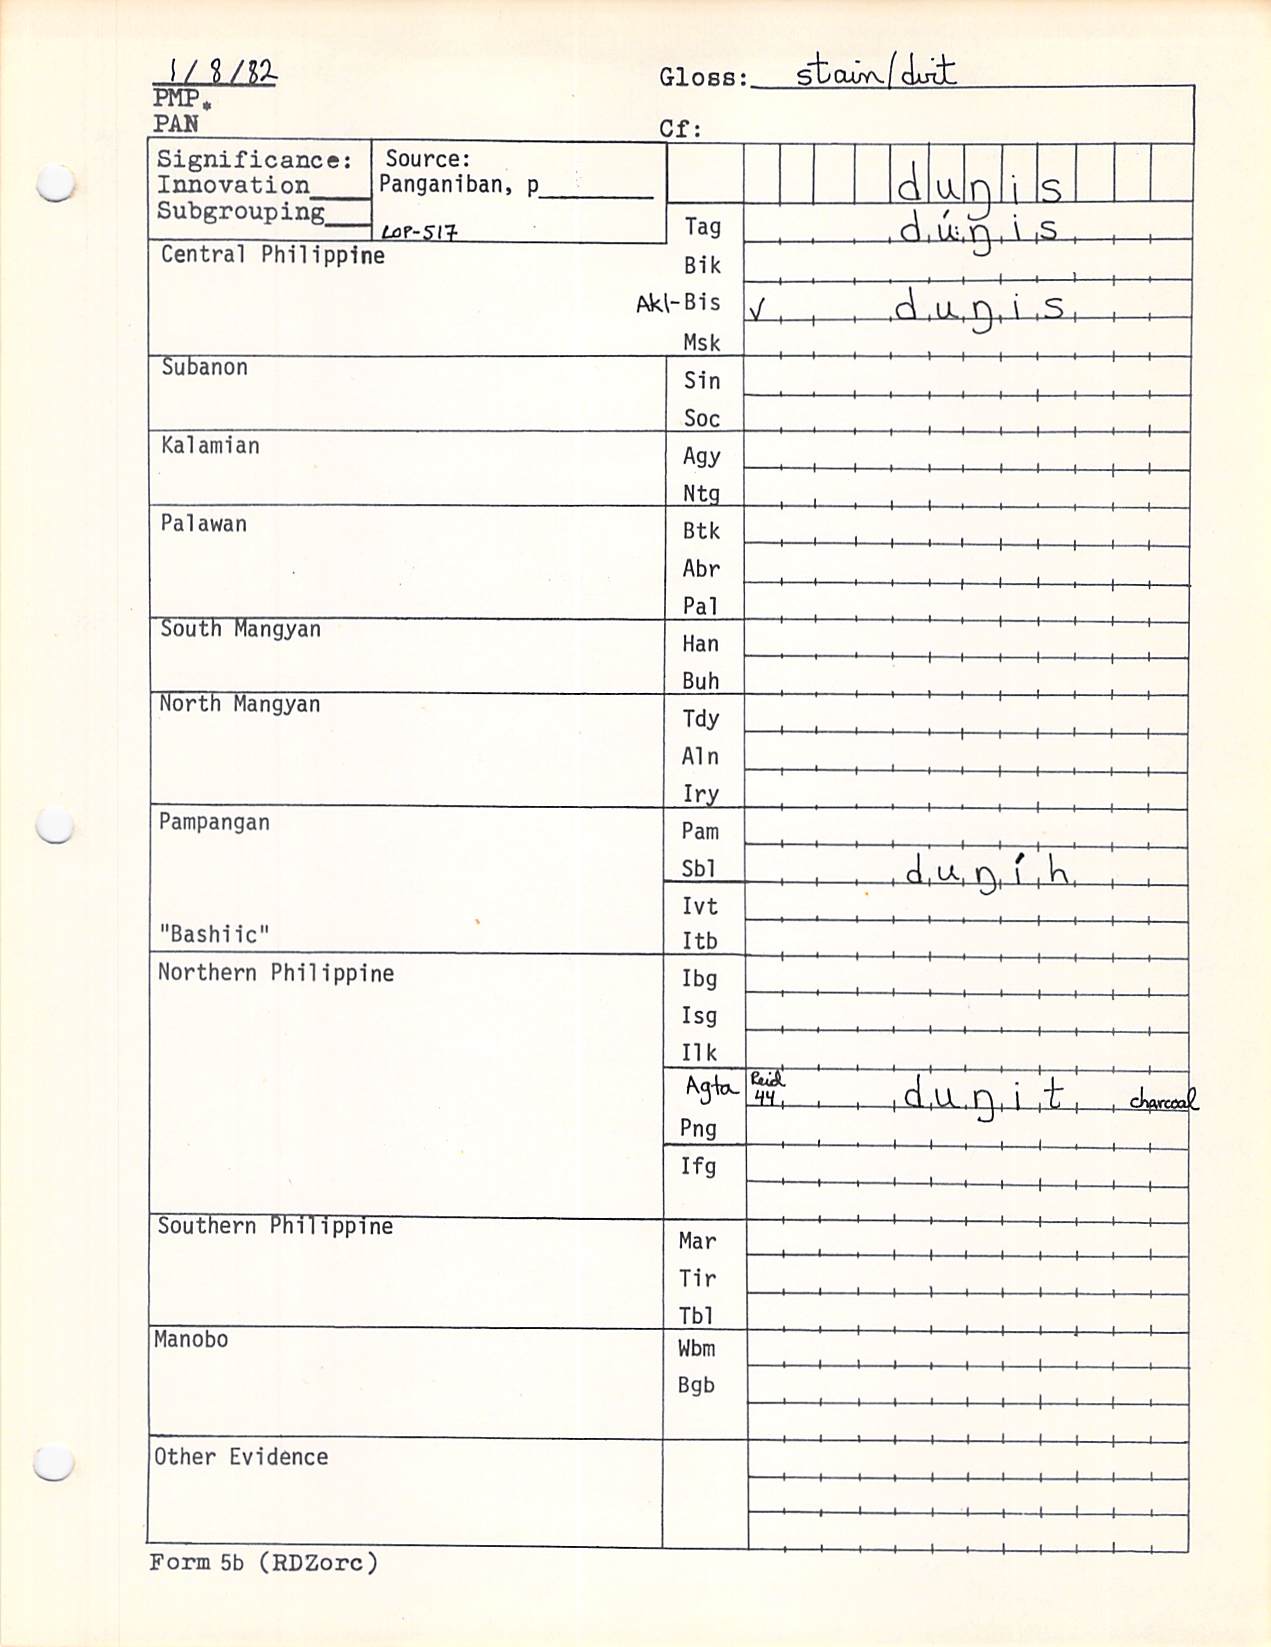 1/8/82
Gloss: stain/dirt
PMP*
PAN
Cf:
Significance:
Innovation____
Subgrouping____
Source:
Panganiban, p________
LOP-517
duŋis
Tag dú:ŋis
Central Philippine
Bik
Akl-Bis √ duŋis
Msk
Subanon
Sin
Soc
Kalamian
Agy
Ntg
Palawan
Btk
Abr
Pal
South Mangyan
Han
Buh
North Mangyan
Tdy
Aln
Iry
Pampangan
Pam
Sbl duŋíh
Ivt
"Bashiic"
Itb
Northern Philippine
Ibg
Isg
Ilk
Agta Reid 44 duŋit charcoal
Png
Ifg
Southern Philippine
Mar
Tir
Tbl
Manobo
Wbm
Bgb
Other Evidence
Form 5b (RDZorc)